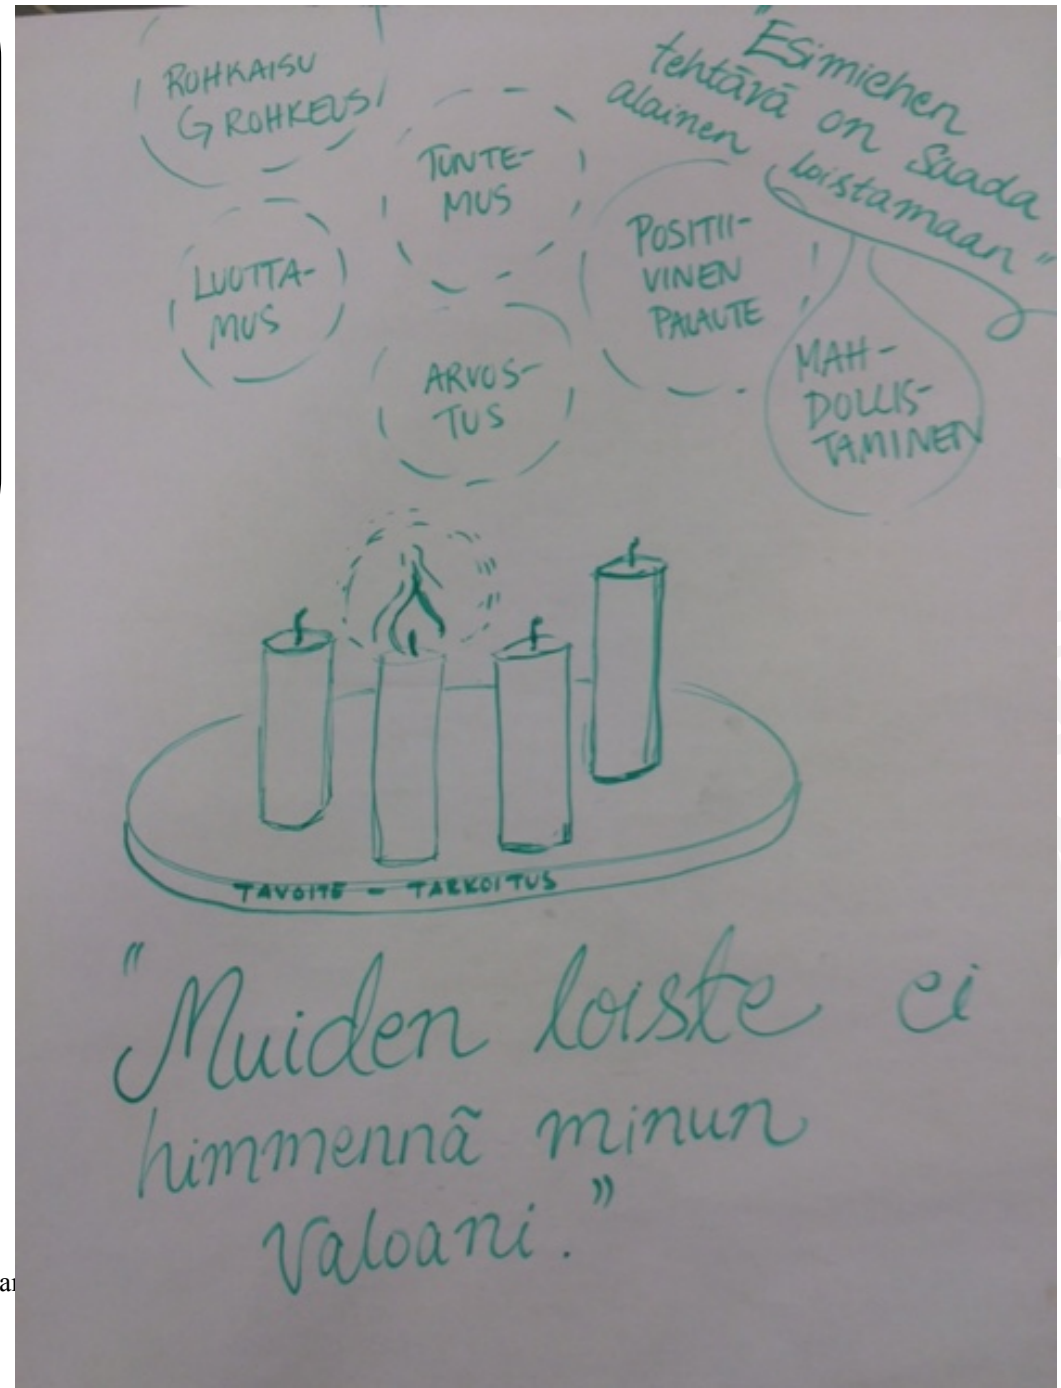 ROHKAISU
& ROHKEUS
TUNTE-
MUS
LUOTTA-
MUS
ARVOS-
TUS
POSITII-
VINEN
PALAUTE
"Esimiehen
tehtävä on saada
alainen loistamaan"
MAH-
DOLLIS-
TAMINEN
TAVOITE - TARKOITUS
"Muiden loiste ei
himmennä minun
valoani."